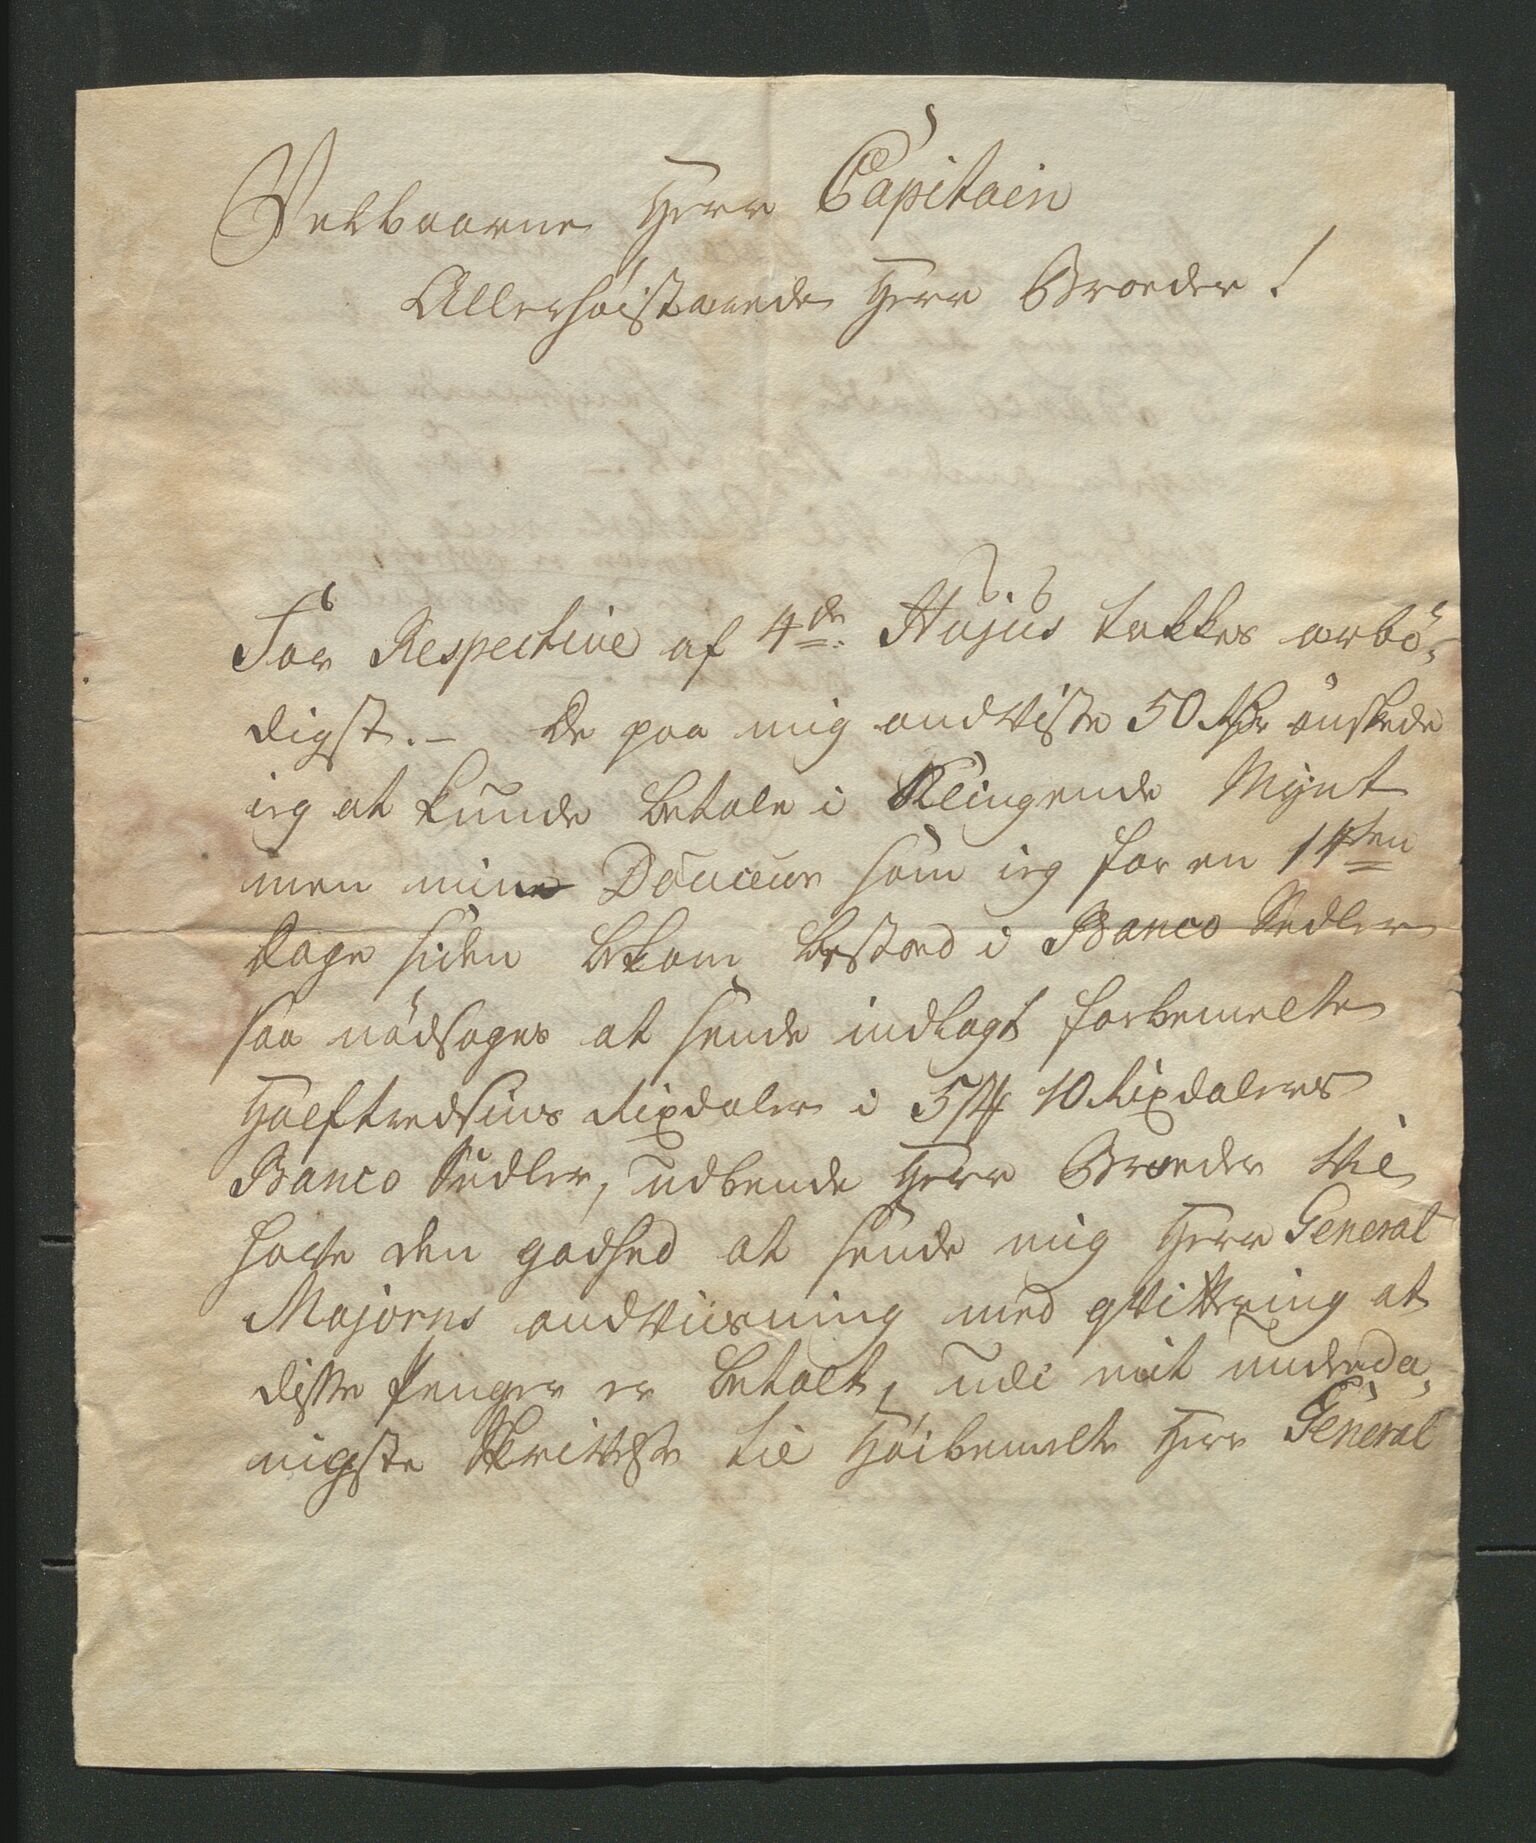 Velbaarne Herr Capitain
Allerhøistærede Herr Broeder!
For Respective af 4de Hujus takkes ærbö-
digst. – De paa mig andviste 50 Rdr önskede
ieg at kunde betale i Klingende Mÿnt
men mine Douceur som ieg for en 14ten
dage siden bekom bestoed i Banco Sedler
saa nödsages at sende indlagt forbemelte
Halftredsins Rixdaler i 5 st 10 Rixdalers
Banco Sedler, udbende Herr Broeder vil
have den godhed at sende mig Herr General
Majorns andviisning med qvittering at
disse Penger er betalt, udi mit underda-
nigste Skrivelse til Høibemelte Herr General